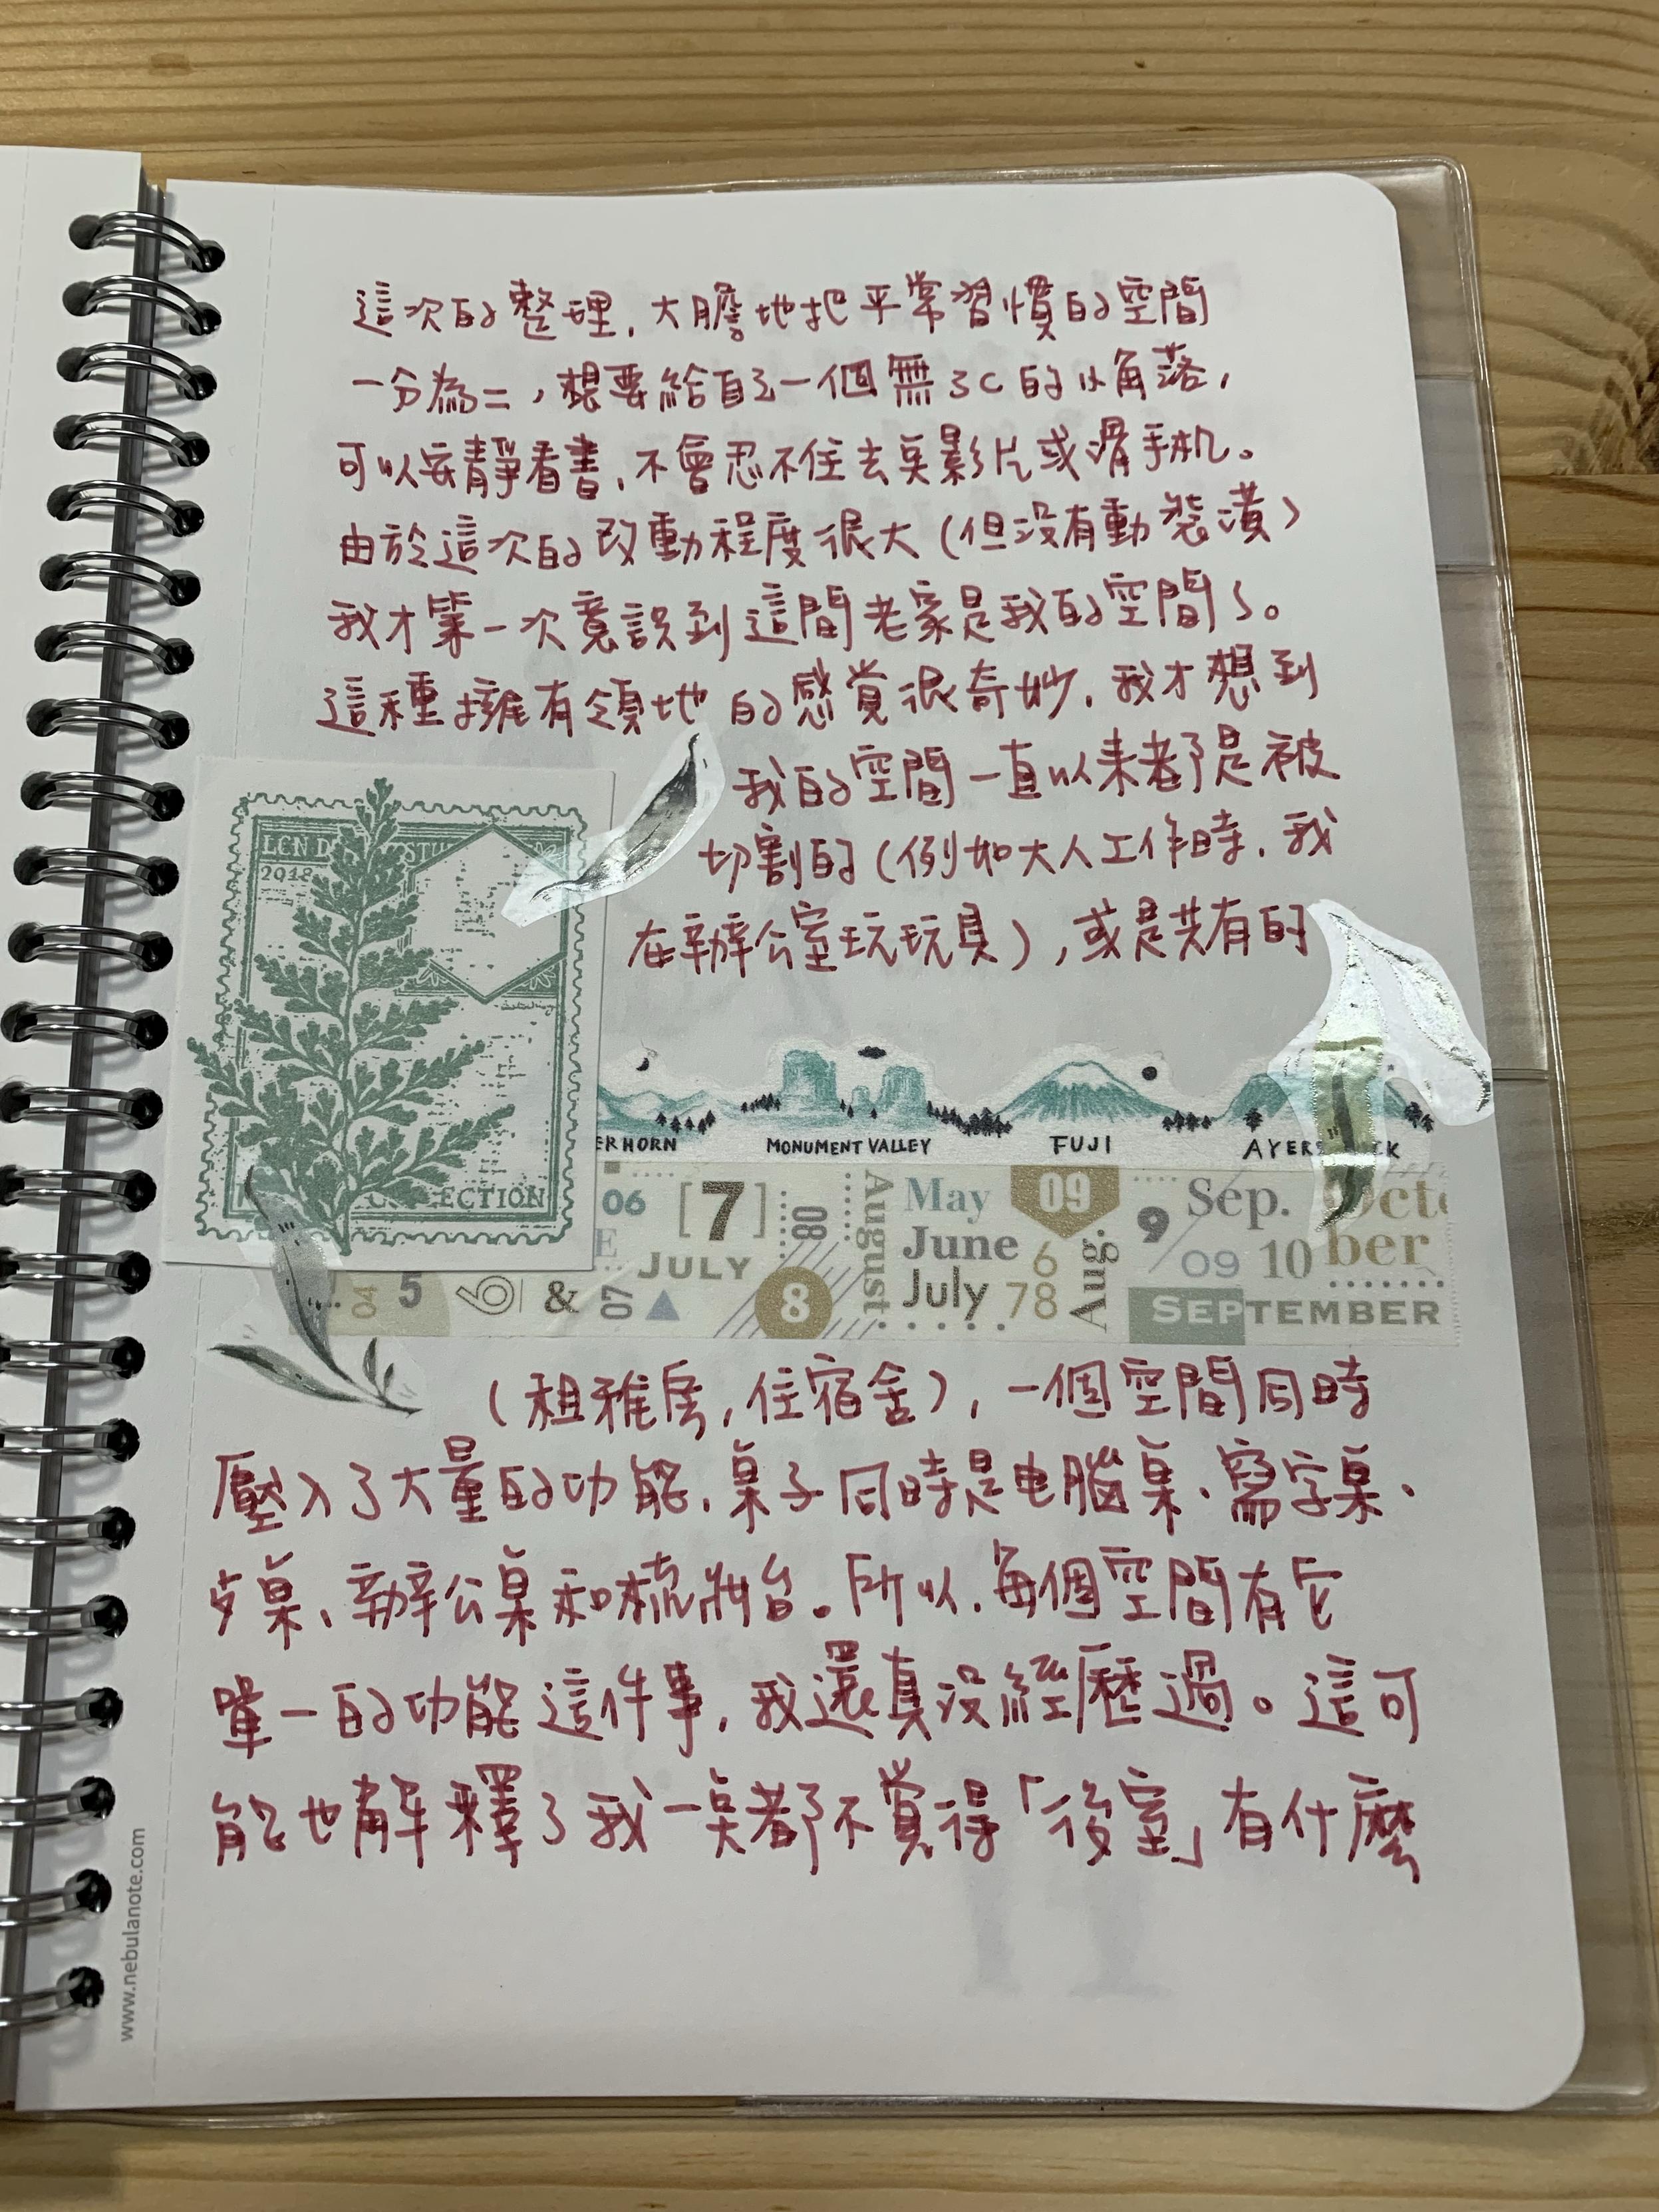 這次的整理，大膽地把平常習慣的空間
一分為二，想要給自己一個無3C的小角落，
可以安靜看書，不會忍不住去點影片或滑手机。
由於這次的改動程度很大（但沒有動裝潢）
我才第一次意識到這間老家是我的空間了。
這種擁有領地的感覺很奇妙，我才想到
我的空間一直以來都是被
切割的（例如大人工作時，我
在辦公室玩玩具），或是共有的
LON
2018
ECTION
ERHORN MONUMENT VALLEY FUJI AYERS CK
06 [7] 08 August May 09 9 Sep. Octo
E JULY June 6 Aug. 09 10 ber
04 5 6 & 07 8 July 78 SEPTEMBER
（租雅房，住宿舍），一個空間同時
壓入了大量的功能，桌子同時是电腦桌、寫字桌、
歺桌、辦公桌和梳妝台。所以，每個空間有它
單一的功能這件事，我還真沒經歷過。這可
能也解釋了我一點都不覺得「後室」有什麼
www.nebulanote.com